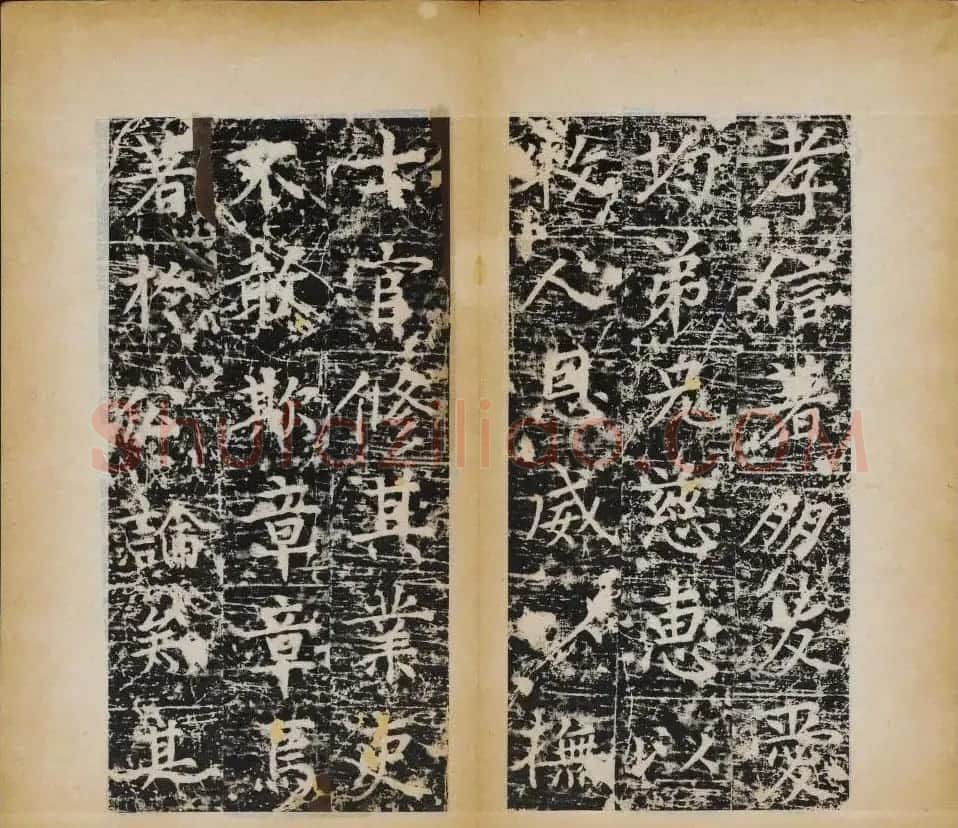 孝信著朋友愛
均弟兄慈惠以
人恩威撫
士官修其業吏
不敢欺章章焉
著於論矣其
Shufaziliao.COM